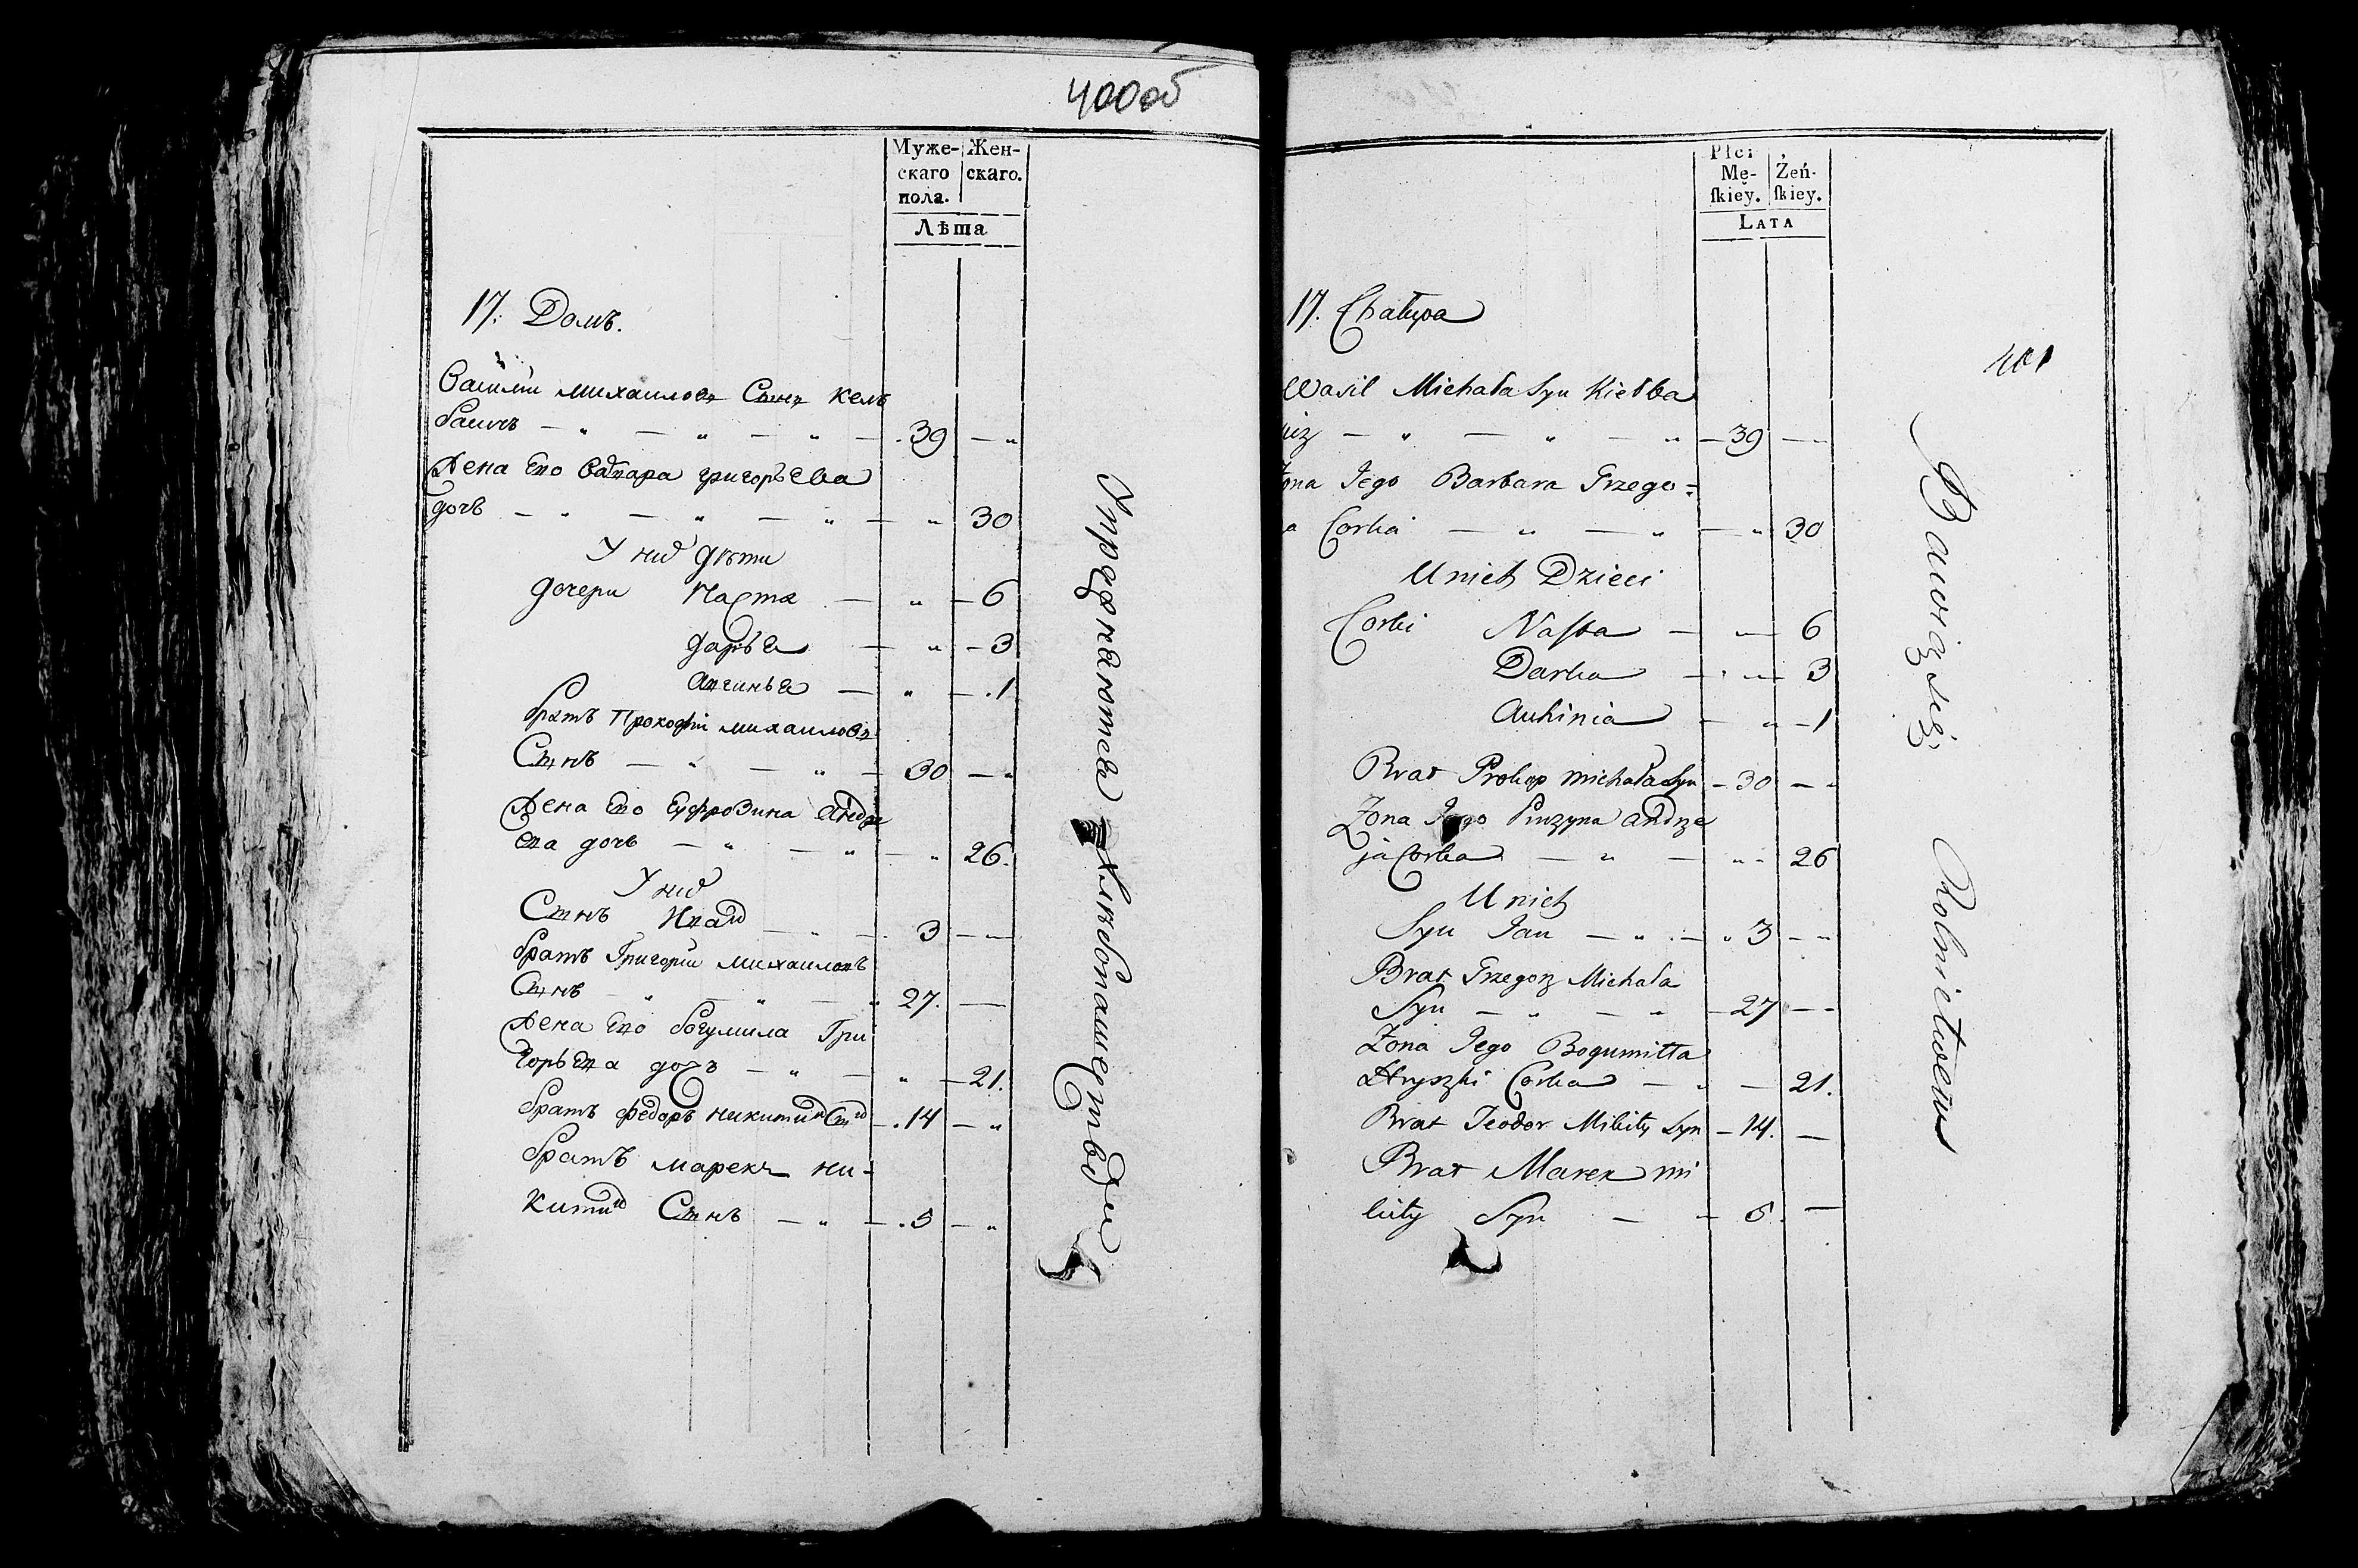 400об
Муже-
скаго
пола.
Жен-
скаго.
Лѣта
17. Домъ.
Василий Михаилова Сынъ Келъ
басичъ — „ — „ — „ — 39 — „
Жена Его Варвара Григорьева
дочь — „ — „ — „ — „ 30
У них дѣти
дочери Настя — „ — 6
дарья — „ — 3
— „ — 1
братъ Прокофий Михаилова
Сынъ — „ — „ — 30 — „
Жена Его Еуфрозина Андре
ева дочь — „ — „ — „ 26.
У них
Сынъ Иван — „ — 3 — „
братъ Григорий Михаиловъ
Сынъ — „ — „ — „ 27. —
Жена Его богумила Гри
горьева дочь — „ — „ — 21.
братъ федоръ Никитин Сын — 14 — „
братъ марекъ Ни-
китин Сынъ — „ — 5 — „
Упраждняются Хлѣбопашеством
Płci
Mę-
ſkiey.
Żeń-
ſkiey.
Lata
401
17. Chałupa
Wasil Michała Syn Kiełba
— „ — „ — „ — 39 — „
Żona Jego Barbara Grzego-
a Corka — „ — „ — „ 30
U nich Dzieci
Corki Nasta — „ — 6
Darka — „ — 3
Auhinia — „ — 1
Brat Prokop Michała Syn — 30 — „
Żona Jego Andrze
ja Corka — „ — „ „ 26
U nich
Syn Jan — „ — „ 3 — „
Brat Grzegorz Michała
Syn — „ — „ — 27 — —
Żona Jego Bogumiłła
Hryszki Corka — „ — 21.
Brat Teodor Mikity Syn — 14. —
Brat Marek Mi
kity Syn — — 5. —
Bawią się Rolnictwem